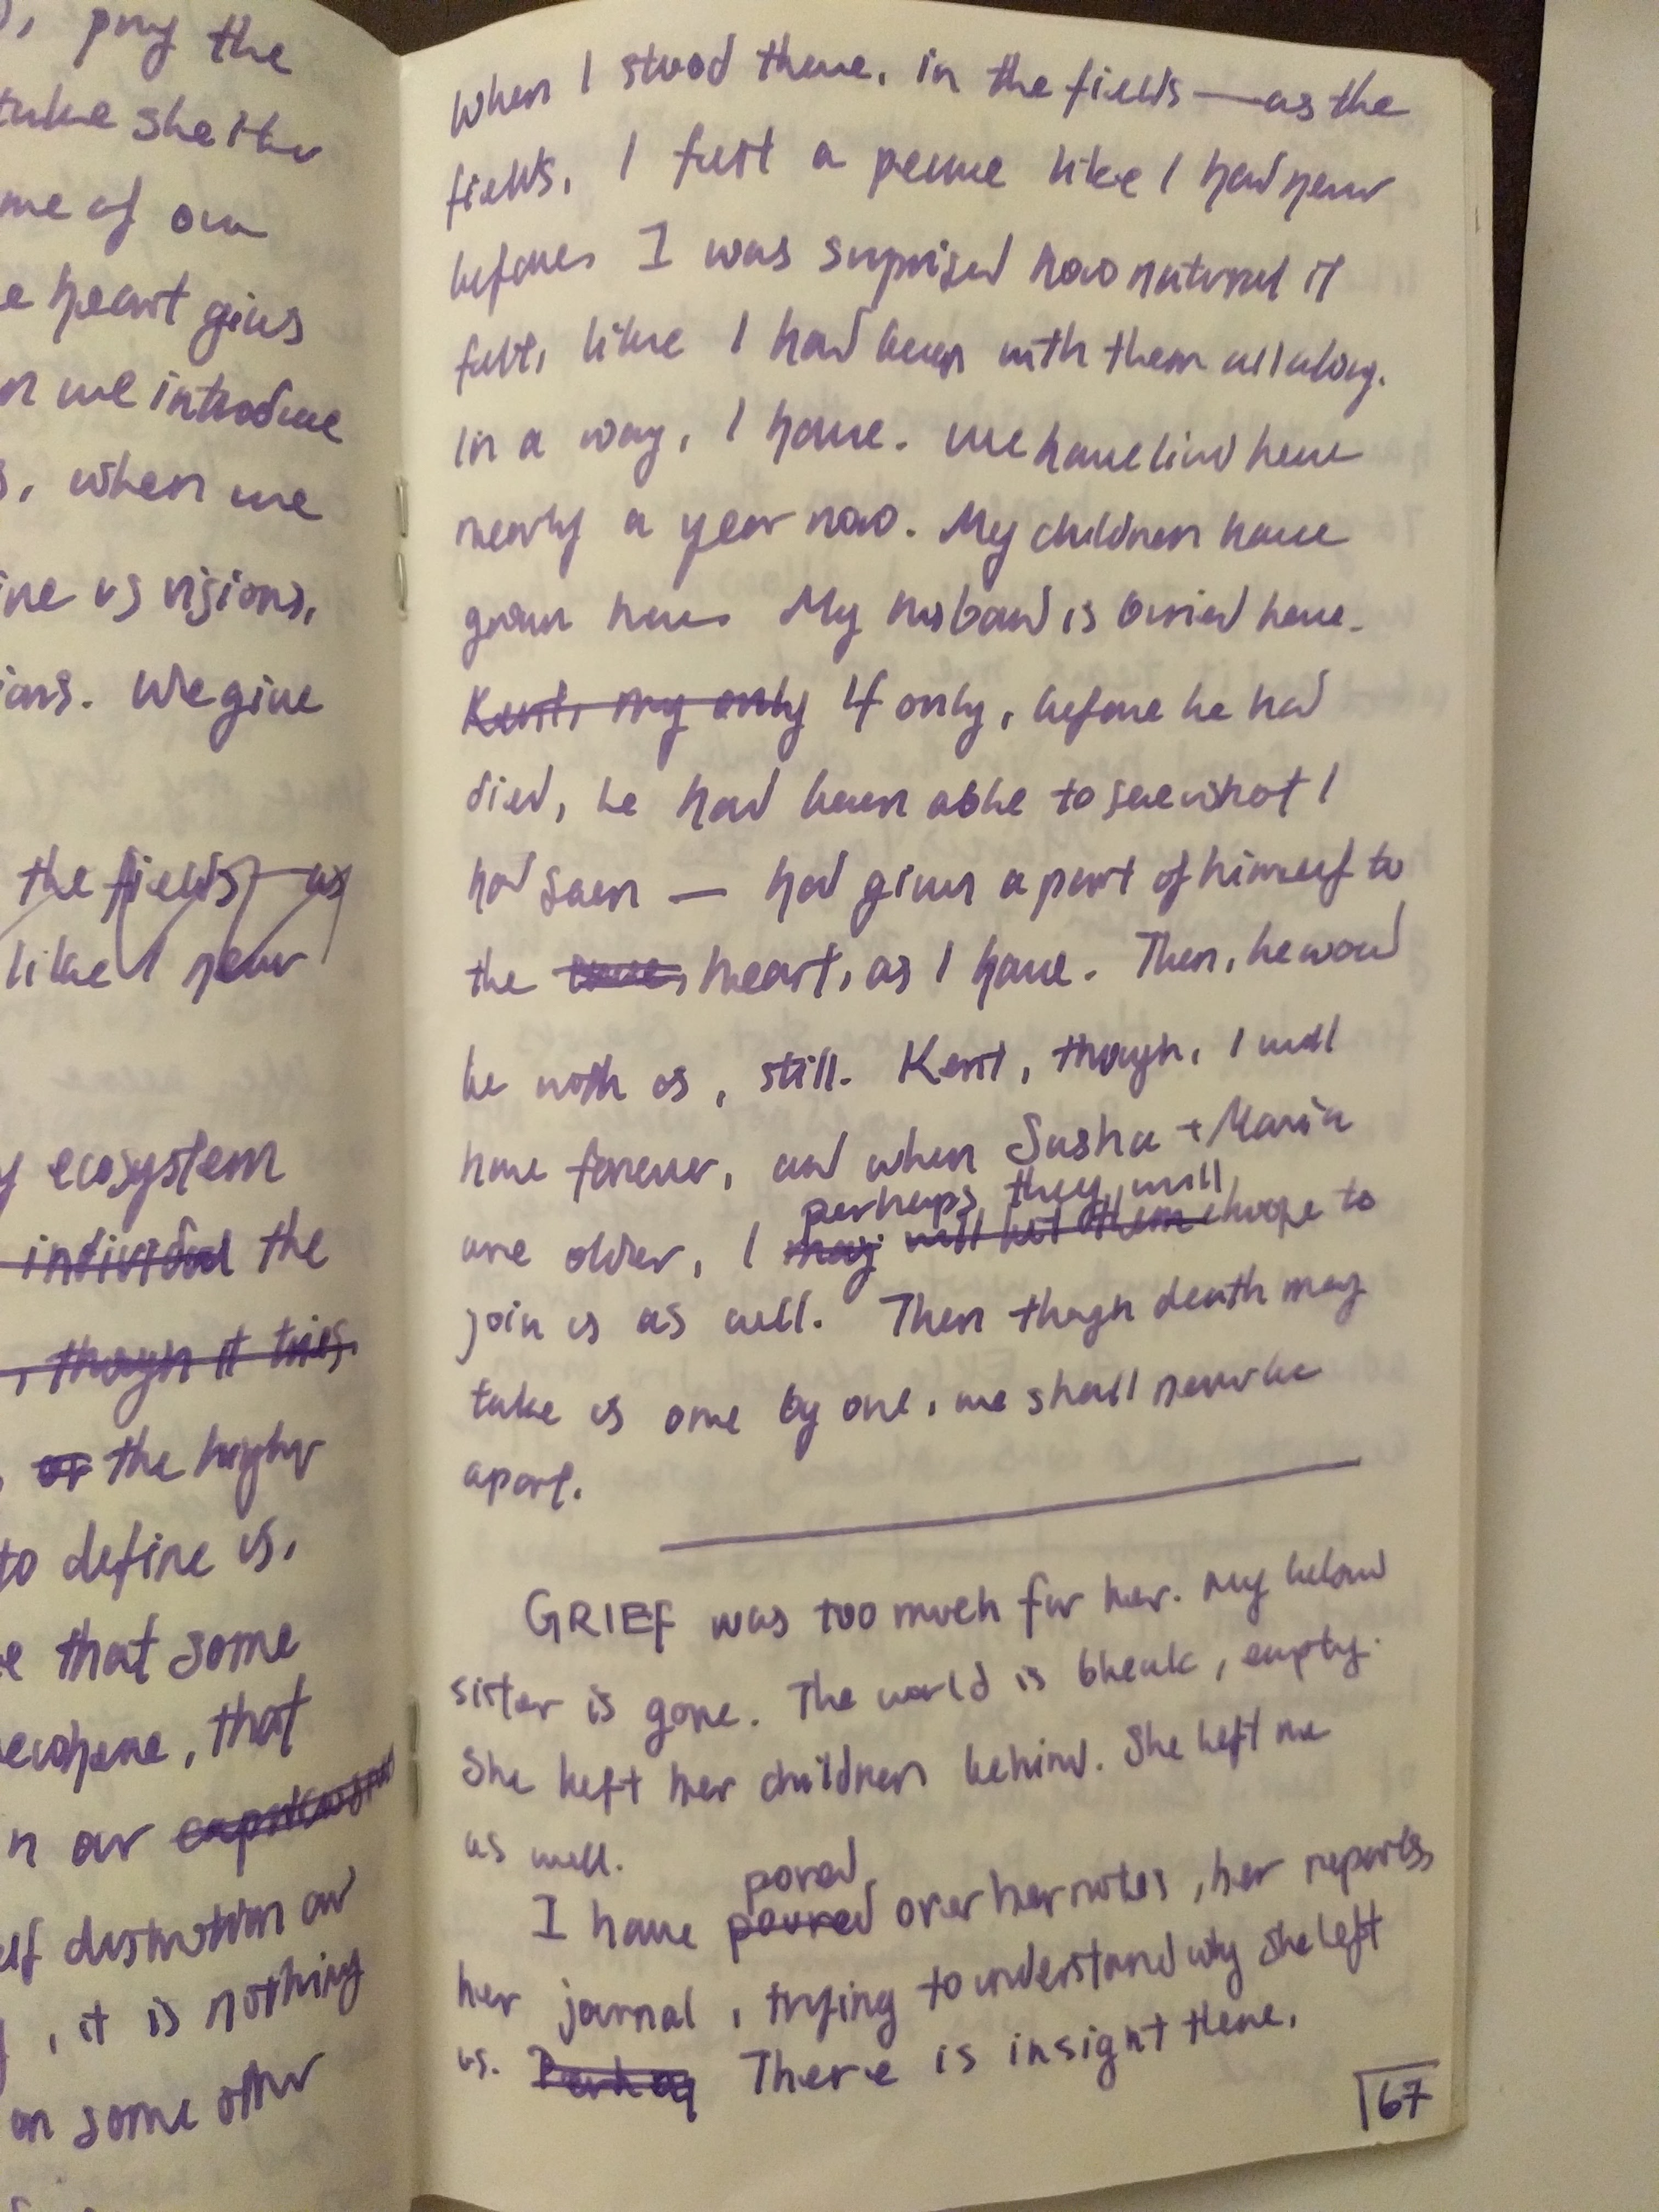 , pray the
take shelter
me of our
e heart gives
n we introduce
s, when we
ine us visions,
ians. We give
the fields — as
like I never
y ecosystem
individual the
, though it tries.
, or the higher
to define us,
e that some
, that
n our
elf destruction and
, it is nothing
on some other
When I stood there, in the fields — as the
fields, I felt a peace like I had never
before. I was surprised how natural it
felt, like I had been with them all along.
In a way, I have. We have lived here
nearly a year now. My children have
grown here. My husband is buried here.
Kent, my only If only, before he had
died, he had been able to see what I
had seen — had given a part of himself to
the heart, as I have. Then, he would
be with us, still. Kent, though, I will
have forever, and when Sasha + Maria
perhaps, they will
are older, I may will let them choose to
join us as well. Then though death may
take us one by one, we shall never be
apart.
GRIEF was too much for her. My beloved
sister is gone. The world is bleak, empty.
She left her children behind. She left me
as well.
pored
I have poured over her notes, her reports,
her journal, trying to understand why she left
us. Perhaps There is insight there,
67